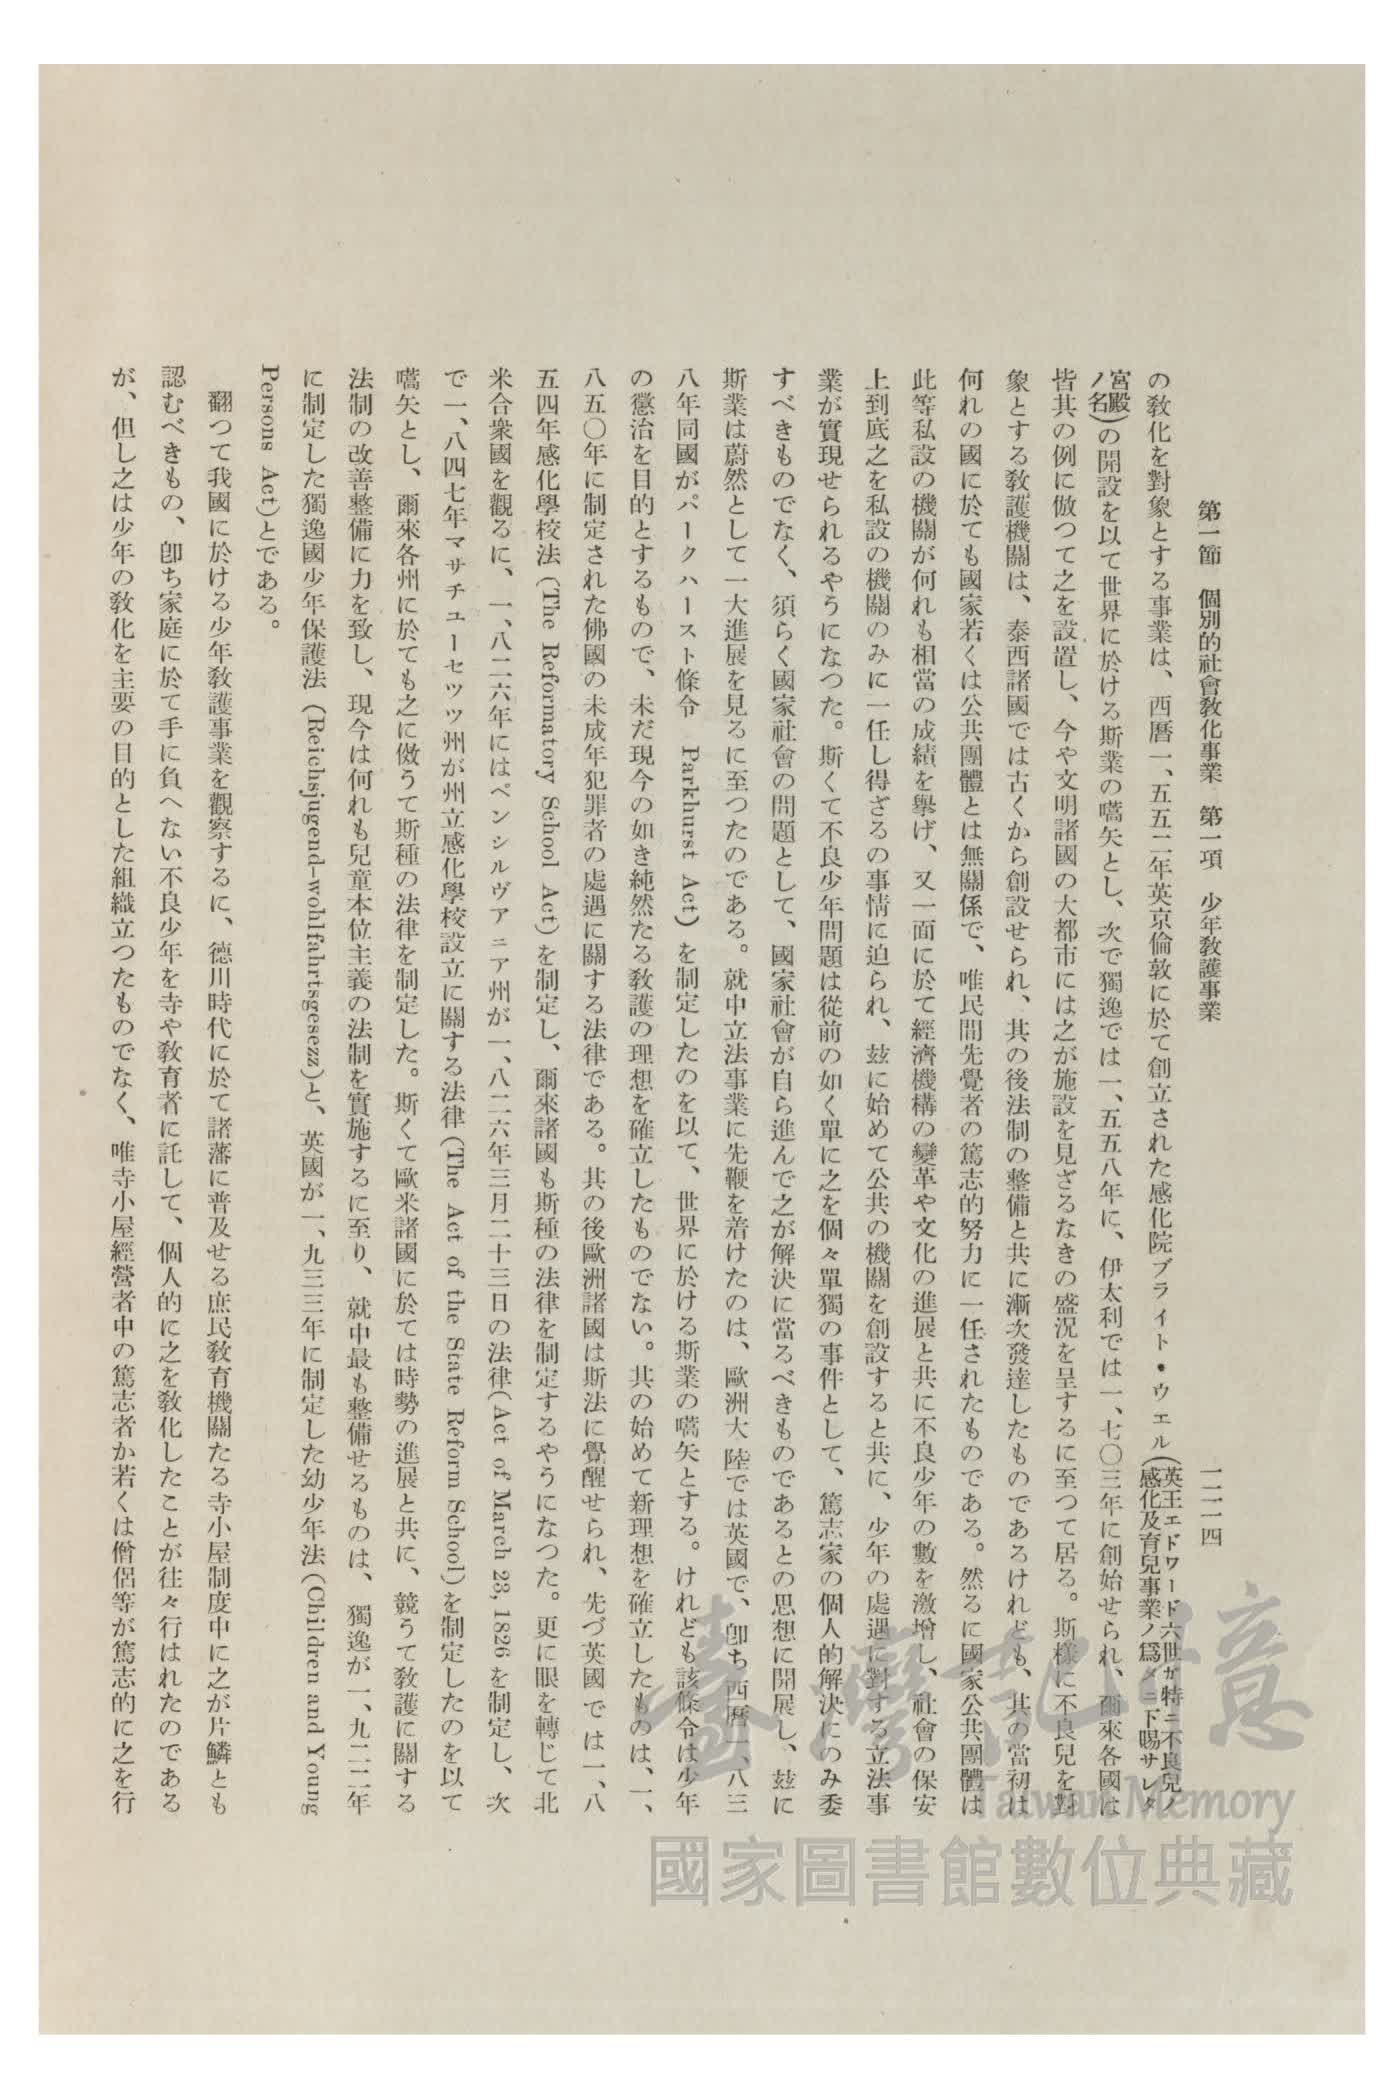 第一節　個別的社會教化事業　第一項　少年教護事業　一一一四
の教化を對象とする事業は、西曆一、五五二年英京倫敦に於て創立された感化院ブライト・ウエル(英王エドワード六世ガ特ニ不良兒ノ感化及育兒事業ノ爲メニ下賜サレタ
宮殿ノ名)の開設を以て世界に於ける斯業の嚆矢とし、次で獨逸では一、五五八年に、伊太利では一、七〇三年に創始せられ、爾來各國は
皆其の例に倣つて之を設置し、今や文明諸國の大都市には之が施設を見ざるなきの盛況を呈するに至つて居る。斯樣に不良兒を對
象とする教護機關は、泰西諸國では古くから創設せられ、其の後法制の整備と共に漸次發達したものであるけれども、其の當初は
何れの國に於ても國家若くは公共團體とは無關係で、唯民間先覺者の篤志的努力に一任されたものである。然るに國家公共團體は
此等私設の機關が何れも相當の成績を擧げ、又一面に於て經濟機構の變革や文化の進展と共に不良少年の數を激增し、社會の保安
上到底之を私設の機關のみに一任し得ざるの事情に迫られ、玆に始めて公共の機關を創設すると共に、少年の處遇に對する立法事
業が實現せられるやうになつた。斯くて不良少年問題は從前の如く單に之を個々單獨の事件として、篤志家の個人的解決にのみ委
すべきものでなく、須らく國家社會の問題として、國家社會が自ら進んで之が解決に當るべきものであるとの思想に開展し、玆に
斯業は蔚然として一大進展を見るに至つたのである。就中立法事業に先鞭を着けたのは、歐洲大陸では英國で、卽ち西曆一、八三
八年同國がパークハースト條令　Parkhurst Act) を制定したのを以て、世界に於ける斯業の嚆矢とする。けれども該條令は少年
の懲治を目的とするもので、未だ現今の如き純然たる教護の理想を確立したものでない。其の始めて新理想を確立したものは、一、
八五〇年に制定された佛國の未成年犯罪者の處遇に關する法律である。其の後歐洲諸國は斯法に覺醒せられ、先づ英國では一、八
五四年感化學校法 (The Reformatory School Act) を制定し、爾來諸國も斯種の法律を制定するやうになつた。更に眼を轉じて北
米合衆國を觀るに、一、八二六年にはペンシルヴアニア州が一、八二六年三月二十三日の法律(Act of March 23, 1826 を制定し、次
で一、八四七年マサチユーセツツ州が州立感化學校設立に關する法律 (The Act of the State Reform School) を制定したのを以て
嚆矢とし、爾來各州に於ても之に傚うて斯種の法律を制定した。斯くて歐米諸國に於ては時勢の進展と共に、競うて教護に關する
法制の改善整備に力を致し、現今は何れも兒童本位主義の法制を實施するに至り、就中最も整備せるものは、獨逸が一、九二二年
に制定した獨逸國少年保護法 (Reichsjugend-wohlfahrtsgesezz)と、英國が一、九三三年に制定した幼少年法 (Children and Young
Persons Act)とである。
翻つて我國に於ける少年教護事業を觀察するに、德川時代に於て諸藩に普及せる庶民教育機關たる寺小屋制度中に之が片鱗とも
認むべきもの、卽ち家庭に於て手に負へない不良少年を寺や教育者に託して、個人的に之を教化したことが往々行はれたのである
が、但し之は少年の教化を主要の目的とした組織立つたものでなく、唯寺小屋經營者中の篤志者か若くは僧侶等が篤志的に之を行
臺灣記憶
Taiwan Memory
國家圖書館數位典藏